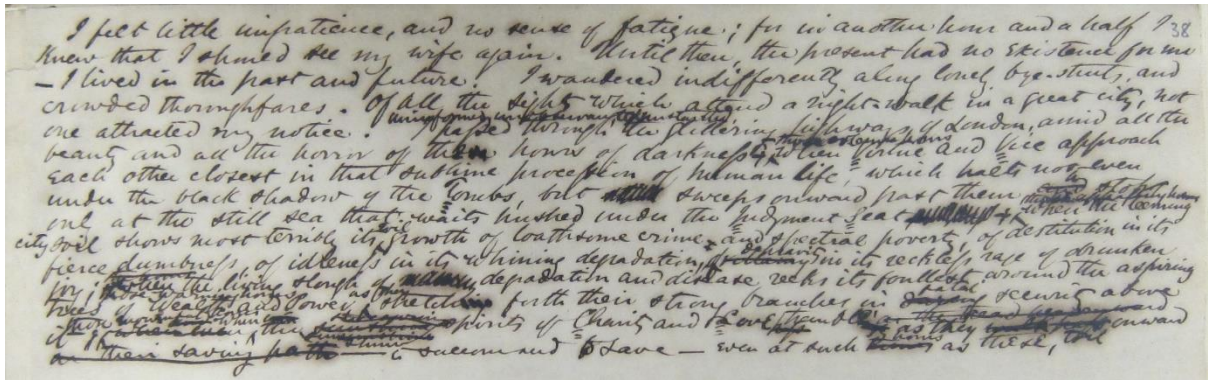 I felt little impatience, and no sense of fatigue; for in another hour and a half I 38
knew that I should see my wife again. Until then, the present had no existence for me
— I lived in the past and future. I wandered indifferently along lonely bye-streets, and
crowded thoroughfares. Of all the sights which attend a night-walk in a great city, not
one attracted my notice. passed through the glittering highways of London, amid all the
beauty and all the horror of hours of darkness, when Virtue and Vice approach
each other closest in that sublime procession of human life, which halts not even
under the black shadow of the Tombs, but sweeps onward past them
only at the still sea that waits hushed under the Judgment Seat when the teeming
city soil shows most terribly its growth of loathsome crime and spectral poverty, of destitution in its
fierce dumbness, of idleness in its whining degradation, in its reckless rage of drunken
joy; when the living slough of degradation and disease, reeks its foulest around the aspiring
trees of Wealth and Power, forth their strong branches in fatal security above
it the spirits of Charity and Love as they onward
to succour and to save — even at such as these,